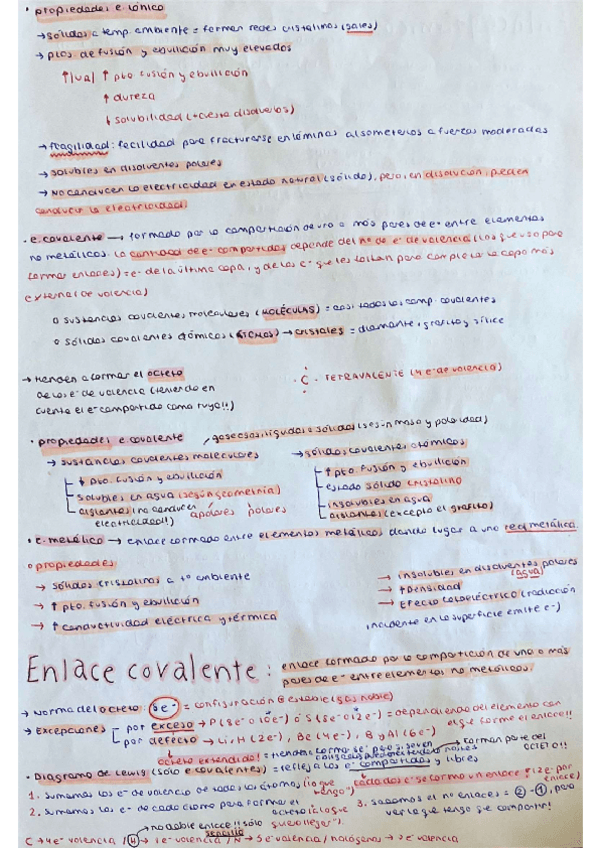 · propiedades e. iónico
→ sólidos a temp. ambiente = forman redes cristalinas (sales)
→ ptos. de fusión y ebullición muy elevados
↑ |Ual ↑ pto fusión y ebullición
↑ dureza
↓ solubilidad (+ cuesta disolverlos)
→ fragilidad: facilidad para fracturarse en láminas al someterlos a fuerzas moderadas
→ solubles en disolventes polares
→ No conducen la electricidad en estado natural (sólido), pero, en disolución, pueden
conducir la electricidad.
· e. covalente → formado por la compartición de uno o más pares de e- entre elementos
no metálicos. La cantidad de e- compartidos depende del nº de e- de valencia (los que uso para
formar enlaces) = e- de la última capa, y de los e- que les faltan para completar la capa más
externa (de valencia)
o sustancias covalentes moleculares (MOLÉCULAS) = casi todos los comp. covalentes
o sólidos covalentes atómicos (ÁTOMOS) → cristales = diamante, grafito y sílice
→ tienden a formar el octeto
de los e- de valencia (teniendo en
cuenta el e- compartido como tuyo!!)
· C · TETRAVALENTE (4 e- de valencia)
· propiedades e. covalente
gaseosas, líquidas o sólidas (según masa y polaridad)
→ sustancias covalentes moleculares
↓ pto. fusión y ebullición
solubles en agua (según geometría)
aislantes (no conducen
electricidad!!)
apolares polares
→ sólidos covalentes atómicos
↑ pto. fusión y ebullición
estado sólido cristalino
insolubles en agua
aislantes (excepto el grafito)
· e. metálico → enlace formado entre elementos metálicos dando lugar a una red metálica.
o propiedades
→ sólidos cristalinos a tº ambiente
→ ↑ pto. fusión y ebullición
→ ↑ conductividad eléctrica y térmica
→ insolubles en disolventes polares
(agua)
→ ↑ densidad
→ Efecto fotoeléctrico (radiación
incidente en la superficie emite e-)
Enlace covalente: enlace formado por la compartición de uno o más
pares de e- entre elementos no metálicos.
→ Norma del octeto: 8e- = configuración + estable (gas noble)
→ Excepciones
por exceso → P (8e- o 10e-) ó S (8e- o 12e-) = dependiendo del elemento con
el que forme el enlace!!
por defecto → Li, H (2e-), Be (4e-), B y Al (6e-)
octeto extendido!
forman parte del
OCTETO!!
· Diagrama de Lewis (sólo e. covalentes) = refleja los e- compartidos y libres
1. sumamos los e- de valencia de todos los átomos (lo que
tengo")
cada dos e- se forma un enlace! (2e- por
enlace)
2. sumamos los e- de cada átomo para formar el
octeto (a lo que
quiero llegar").
3. sacamos el nº enlaces = ② - ①, para
ver lo que tengo que compartir!
→ no doble enlace!! sólo
sencillo
C → 4e- valencia / H → 1e- valencia / N → 5e- valencia / halógenos → 7e- valencia